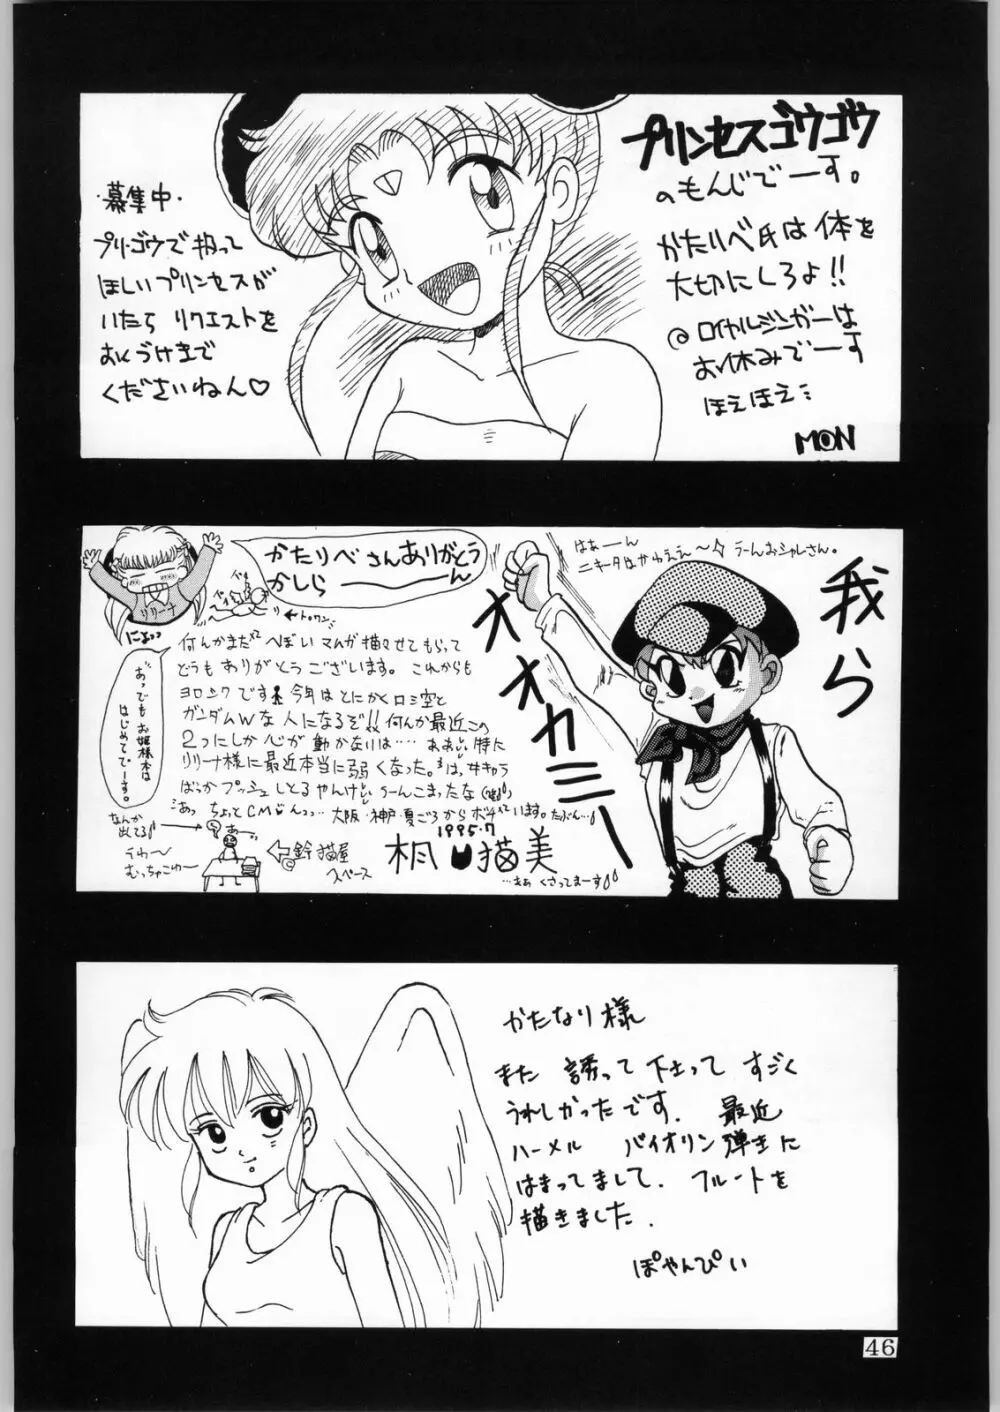 プリンセスゴウゴウ
のもんじでーす。
かたりべ氏は体を
大切にしろよ!!
@ロイヤルジンガーは
お休みでーす
ほえほえ:
MON
・募集中・
プリ・ゴウで扱って
ほしいプリンセスが
いたら リクエストを
おくづけまで
くださいねん♡
かたりべさんありがとう
かしら――ん
リリーナ
べ
べ
←トロワン
にょっっ
あっでもお姫様本は
はじめてでーす。
何んかまだへぼいマンガ描かせてもらって
どうもありがとうございます。これからも
ヨロシクです 今年はとにかくロミ空と
ガンダムWな人になるぞ!! 何んか最近この
2つにしか心が動かないは…… 特に
リリーナ様に最近本当に弱くなった。は、女キャラ
ばっかプッシュしとるやんけ うーんこまったな
あっ ちょっとCM 大阪・神戸・夏ごろからボチいます。たぶん…
なんか
出てる
うわ〜
むっちゃこゆ〜
あー
←©鈴猫屋
スペース
1995.7
桐 猫美
…さぁ くさってまーす
はぁーん
ニキータはかわええ〜☆ うーんおシャレさん。
我ら
オオカミー
かたなり様
また 誘って下さって すごく
うれしかったです. 最近
ハーメル バイオリン弾きに
はまってまして. フルートを
描きました.
ぽやんぴい
46